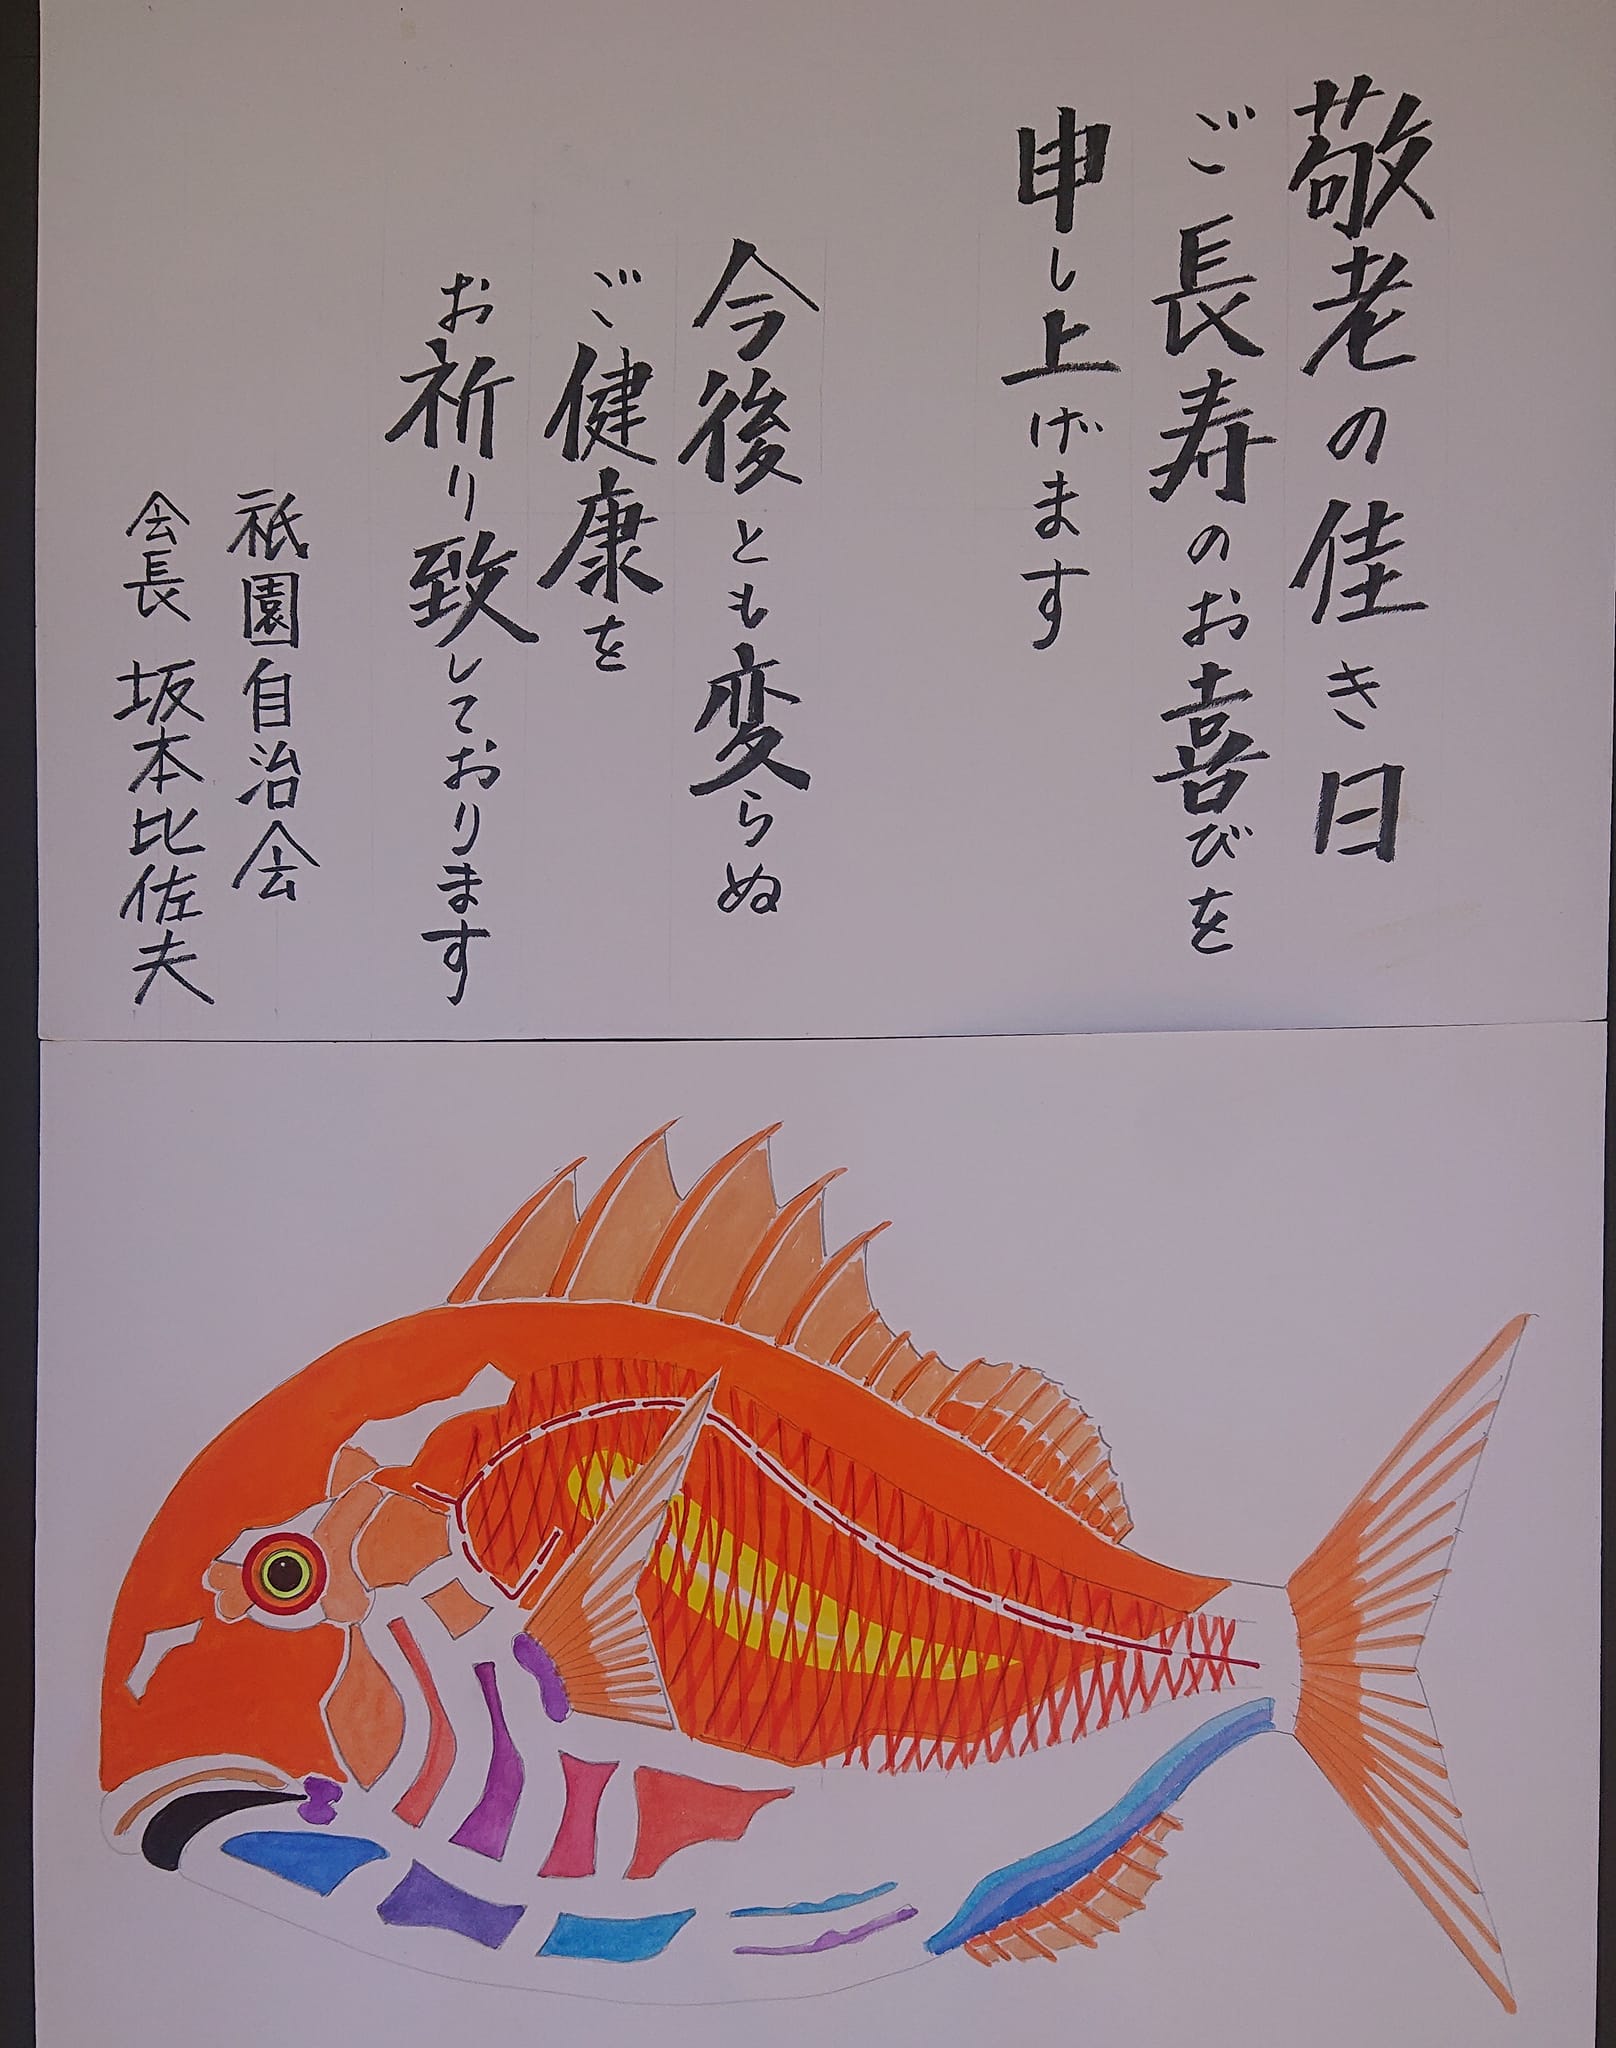 敬老の佳き日
ご長寿のお喜びを
申し上げます
今後とも変らぬ
ご健康を
お祈り致しております
祇園自治会
会長 坂本比佐夫